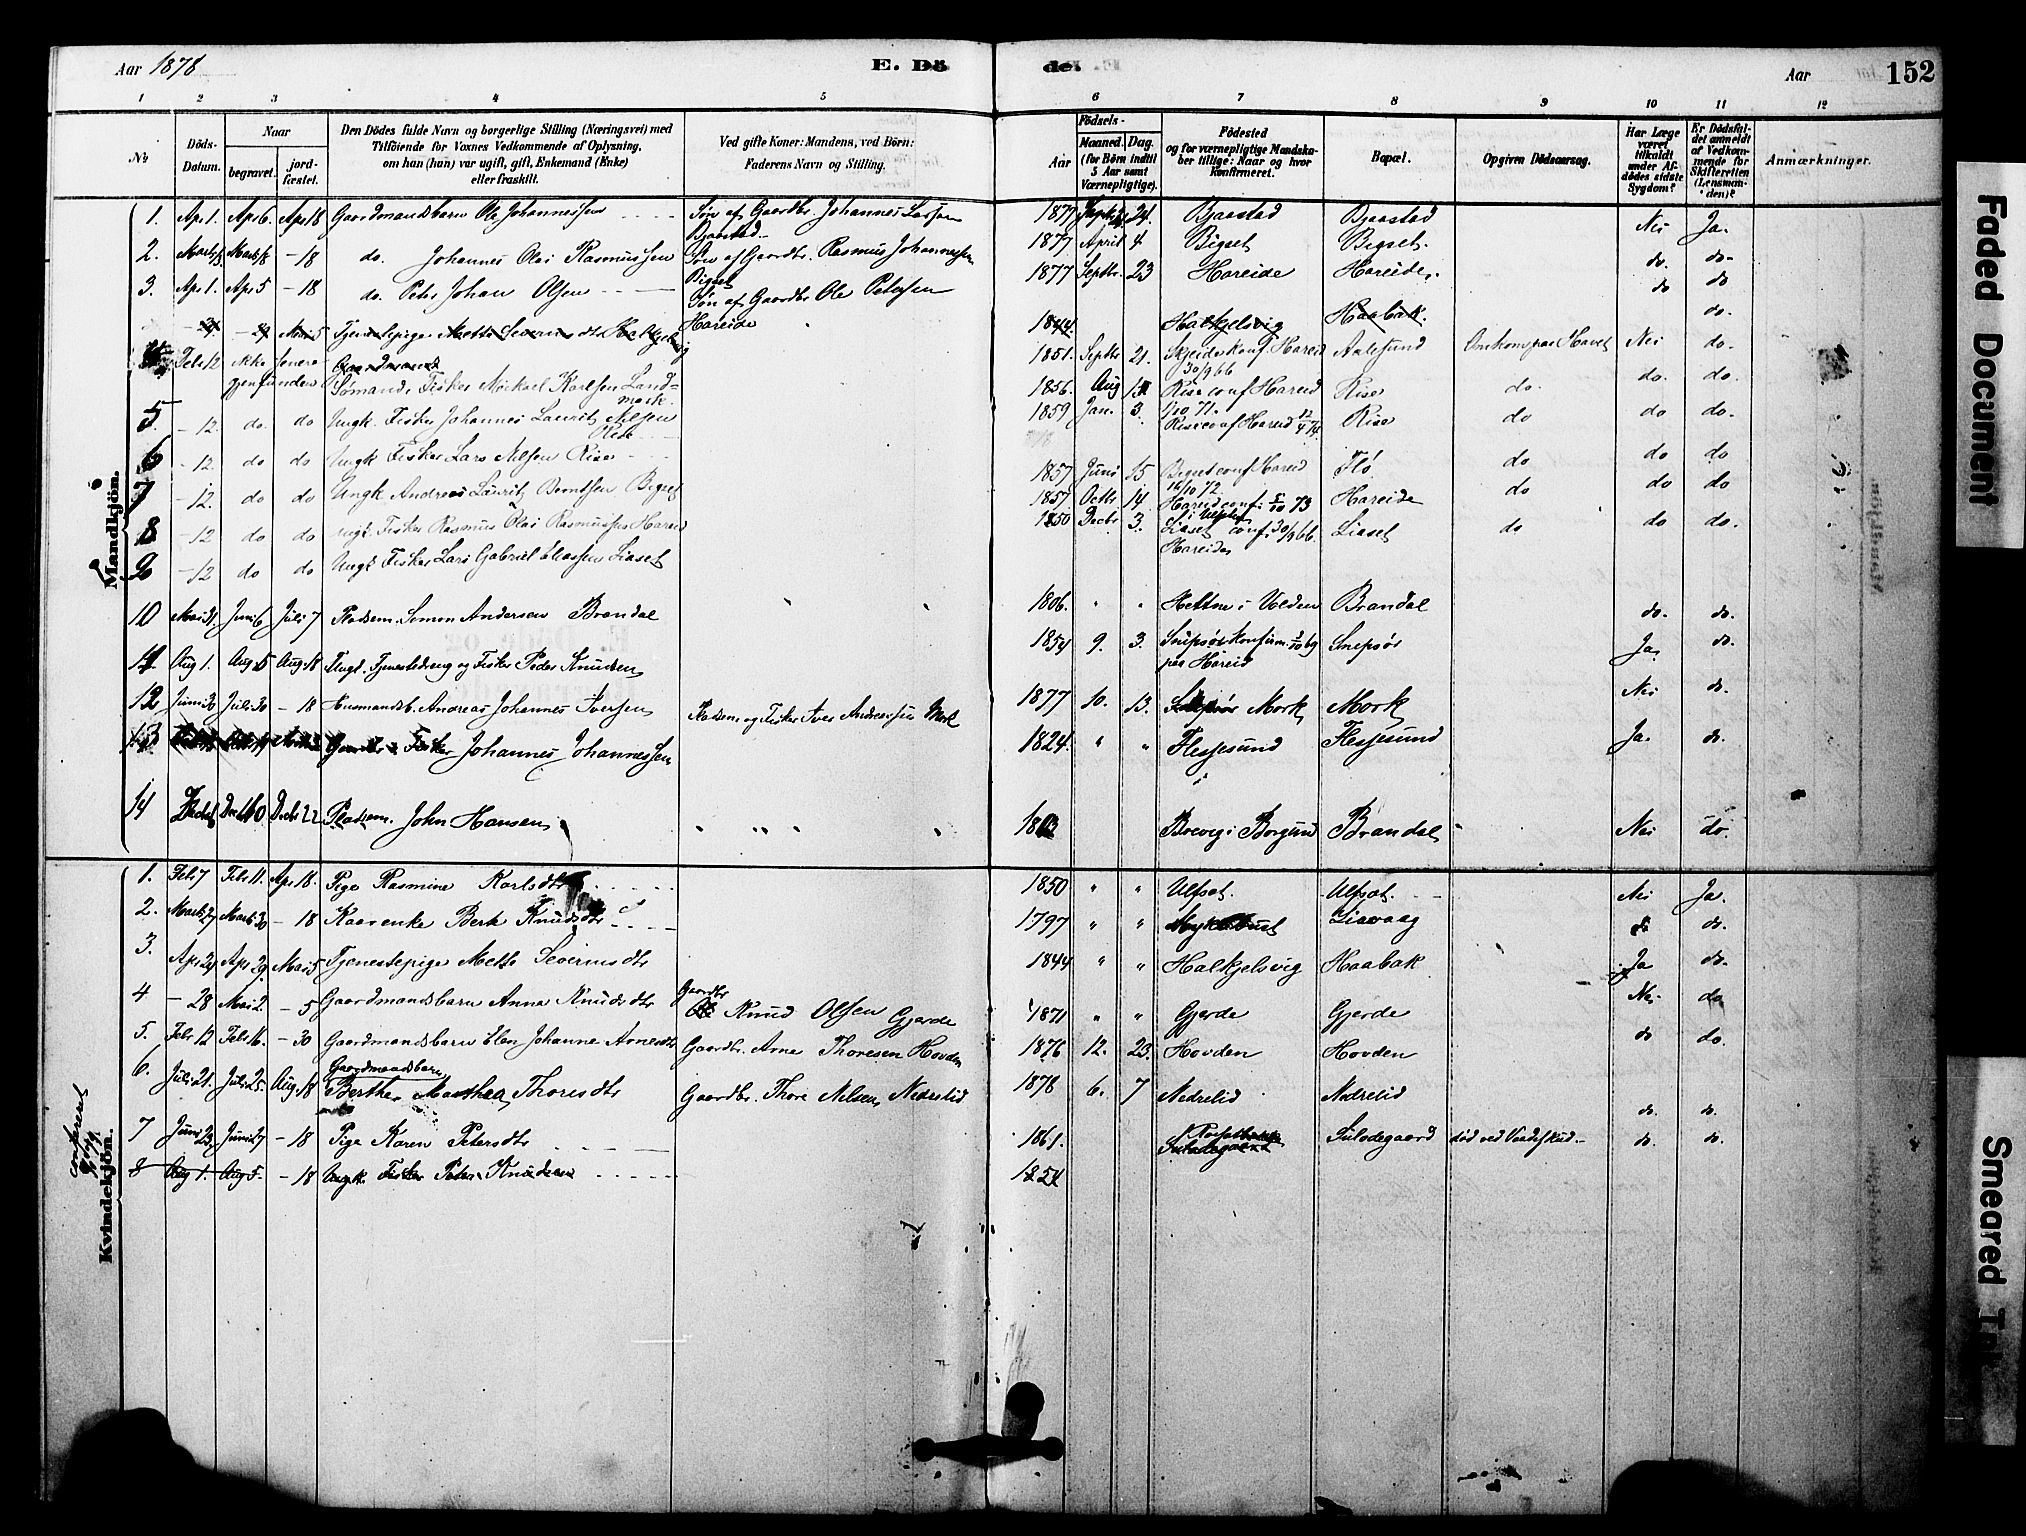 Aar 1878
E. Dö
de.
Aar
152
1 2 3 4 5 6 7 8 9 10 11 12
No
Döds-Datum.
Naar
begravet.
jord-fæstet.
Den Dödes fulde Navn og borgerlige Stilling (Næringsvei) med
Tilföiende for Voxnes Vedkommende af Oplysning,
om han (hun) var ugift, gift, Enkemand (Enke)
eller fraskilt.
Ved gifte Koner: Mandens, ved Börn:
Faderens Navn og Stilling.
Födsels-
Aar
Maaned.
Dag.
(for Börn indtil
5 Aar samt
Værnepligtige).
Födested
og for værnepligtige Mandska-
ber tillige: Naar og hvor
konfirmeret.
Bopæl.
Opgiven Dödsaarsag.
Har Læge
været
tilkaldt
under Af-
dödes sidste
Sygdom?
Er Dödsfal-
det anmeldt
af Vedkom-
mende for
Skifteretten
(Lensman-
den)?
Anmærkninger.
Mandkjön.
1. Apr 1. Apr 6. Apr 18 Gaardmandsbarn Ole Johannessen Søn af Gaardbr. Johannes Larsen Bjaastad 1877 Septbr 24. Bjaastad Bjaastad Nei Ja.
2. Marts Marts - 18 do. Johannes Olai Rasmussen Søn af Gaardbr. Rasmus Johannessen Bigset 1877 April 4 Bigset Bigset. do. do.
3. Apr 1. Apr 5 - 18 do. Peter Johan Olsen Søn af Gaardbr Ole Petersen Hareide 1877 Septbr. 23 Hareide Hareide. do do
Mai 5 Tjenestepige Mette Severinsdtr Halkjelsvig 1844. Halkjelsvig Haabak. do.
Febr 12 ikke senere gjenfunden Gaardmand
Sømand. Fisker Mickael Karlsen Landmark 1851. Septbr 21. Skjeide konf. Hareid 30/9 66 Aalesund Omkom paa Havet Nei do.
5. - 12. do. do Ungk. Fisker Johannes Laurits Nilsen Rise 1856. Aug Rise conf Hareid 1/10 71. Rise do. do. do.
6 - 12. do do Ungk Fisker Lars Nilsen Rise 1859 Jan. 3. Rise conf Hareid Rise do do do.
7 - 12. do do Ungk Andreas Laurits Berntsen Bigset 1857 Juni 15 Bigset conf Hareid Flø do do do
8 - 12 do do Ungk Fisker Rasmus Olai Rasmussen Hareid 1857 Octbr 14 Hareid conf. 5/10 73 Hareide do do do
9 - 12 do do Ungk Fisker Lars Gabriel Eliassen Liaset 1850 Decbr 3. Liaset i Ulfsten conf. 30/9 66. Hareide Liaset do do do.
10 Mai 31. Juni 6 Juli 7 Pladsem. Simon Andersen Brandal 1806. " " Hettne i Volden Brandal do. do.
11 Aug 1. Aug 5 Aug. 18 Ungk. Tjenestedreng og Fisker Peder Knudsen 1854 9. 3. Snipsør konfirm. 3/10 69 paa Hareid Snipsør Ja. do.
12 Juni 30 Juli 30 - 18 Husmandsb. Andreas Johannes Iversen Pladsem. og Fisker Iver Andreassen Mork 1877 10. 13. Mork Mork Nei do.
13 Gaardbr. Fisker Johannes Johannessen 1824. " " Flessesund Flessesund Ja. do.
14 Decbr 10 Decbr 22 Pladsem. John Hansen Brevig i Borgund Brandal Nei do.
Kvindekjön.
1. Febr 7 Febr 11. Apr 18. Pige Rasmine Karlsdtr 1850 " " Ulfset. Ulfset. Nei Ja.
2. Marts 27 Marts 30 - 18 Kaarenke Berte Knudsdtr 1797 " " Myklebust Liavaag do do.
3. Apr 24 Apr 29. Mai 5 Tjenestepige Mette Severinsdtr 1844 " " Halkjelsvig Haabak Ja do.
4 - 28 Mai 2. - 5 Gaardmandsbarn Anna Knudsdtr Gaardbr Knud Olsen Gjerde 1871 " " Gjerde Gjerde Nei do
5. Febr 12 Febr 16. - 30 Gaardmandsbarn Elen Johanne Arnesdtr Gaardbr. Arne Thoresen Hovden 1876 12. 23. Hovden Hovden do do.
6. Juli 21. Juli 25. Aug. 18 Gaardmandsbarn Berthe Marthea Thoresdtr Gaardbr. Thore Nilsen Nedrelid 1878 6. 7 Nedrelid Nedrelid do. do.
7 Juni 23. Juni 27 - 18 Pige Karen Petersdtr 1861. Sulodegaard død ved Vaadeskud. do. do.
8 Aug 1. Aug 5. - 18 Ungk. Fisker Peder Knudsen 1854
conferert
Faded Document
Smeared